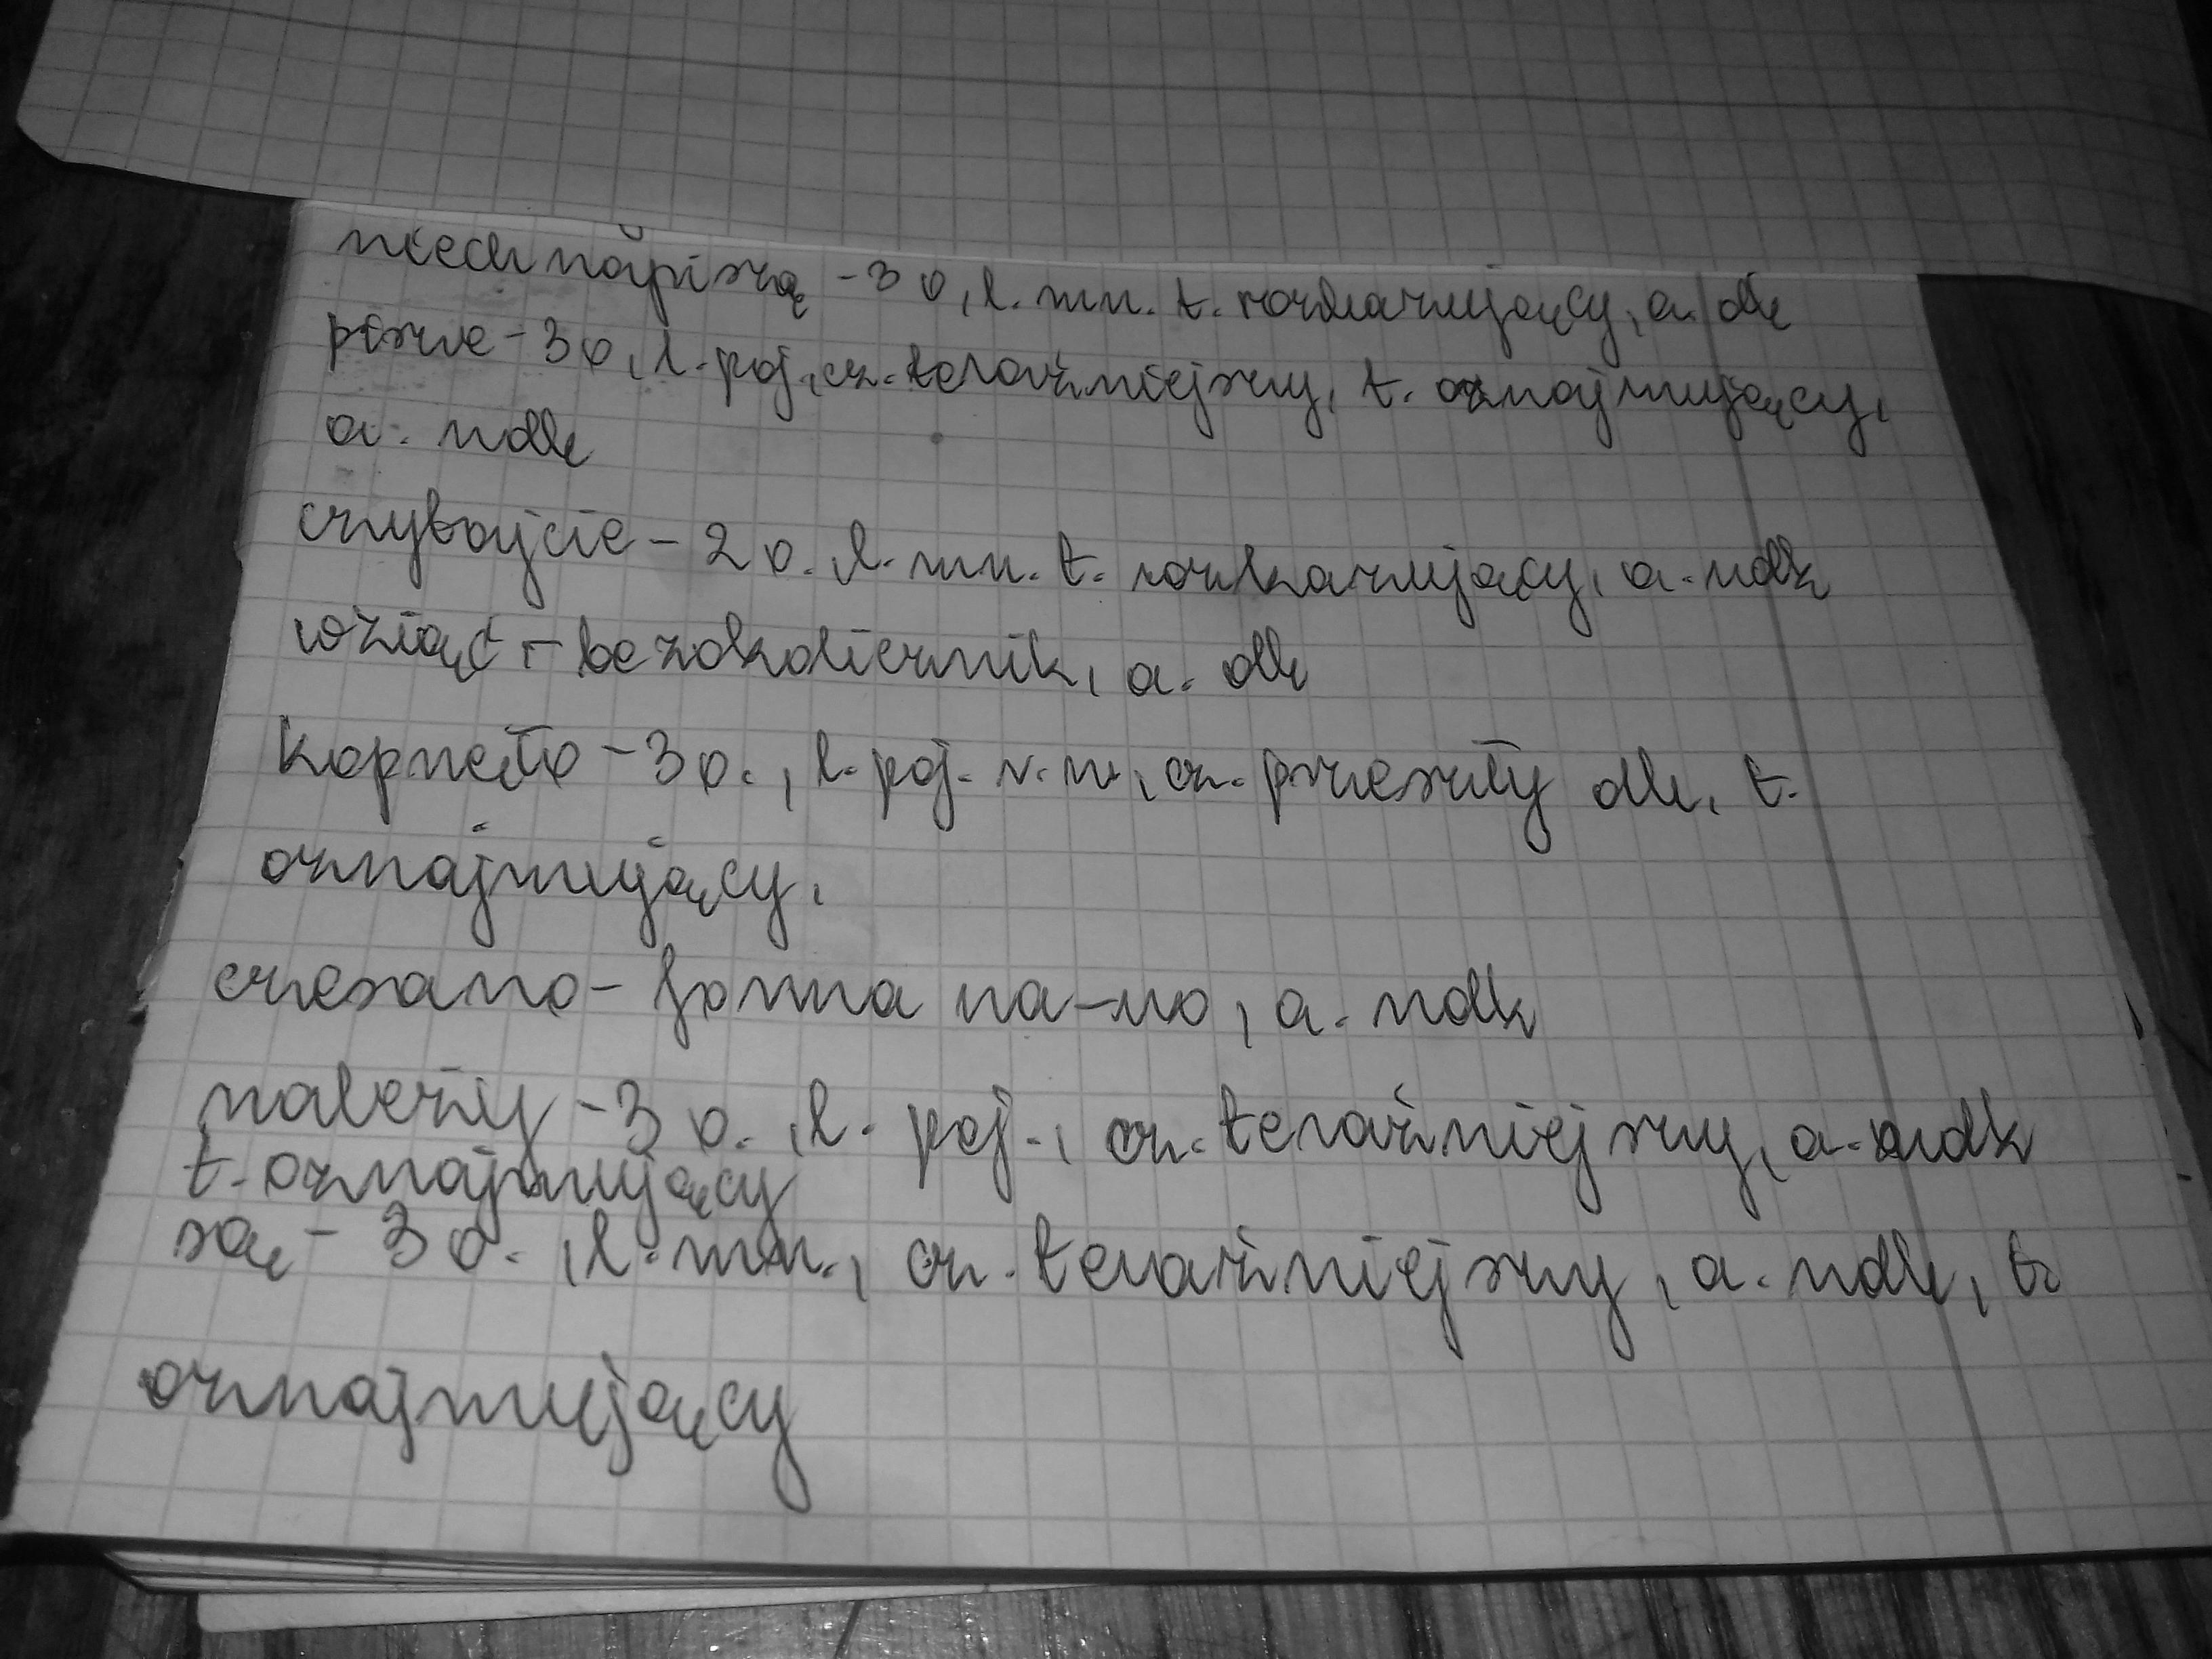 niech napiszą - 3 o, l. mn. t. rozkazujący, a. dk
pisze - 3 o, l. poj, cz. teraźniejszy, t. oznajmujący,
a. ndk
czytajcie - 2 o. l. mn. t. rozkazujący, a. ndk
wziąć - bezokolicznik, a. dk
kopnęło - 3 o., l. poj. r. n, cz. przeszły dk, t.
oznajmujący.
czesano - forma na -no, a. ndk
należy - 3 o., l. poj., cz. teraźniejszy, a. ndk
t. oznajmujący
są - 3 o., l. mn., cz. teraźniejszy, a. ndk, t.
oznajmujący